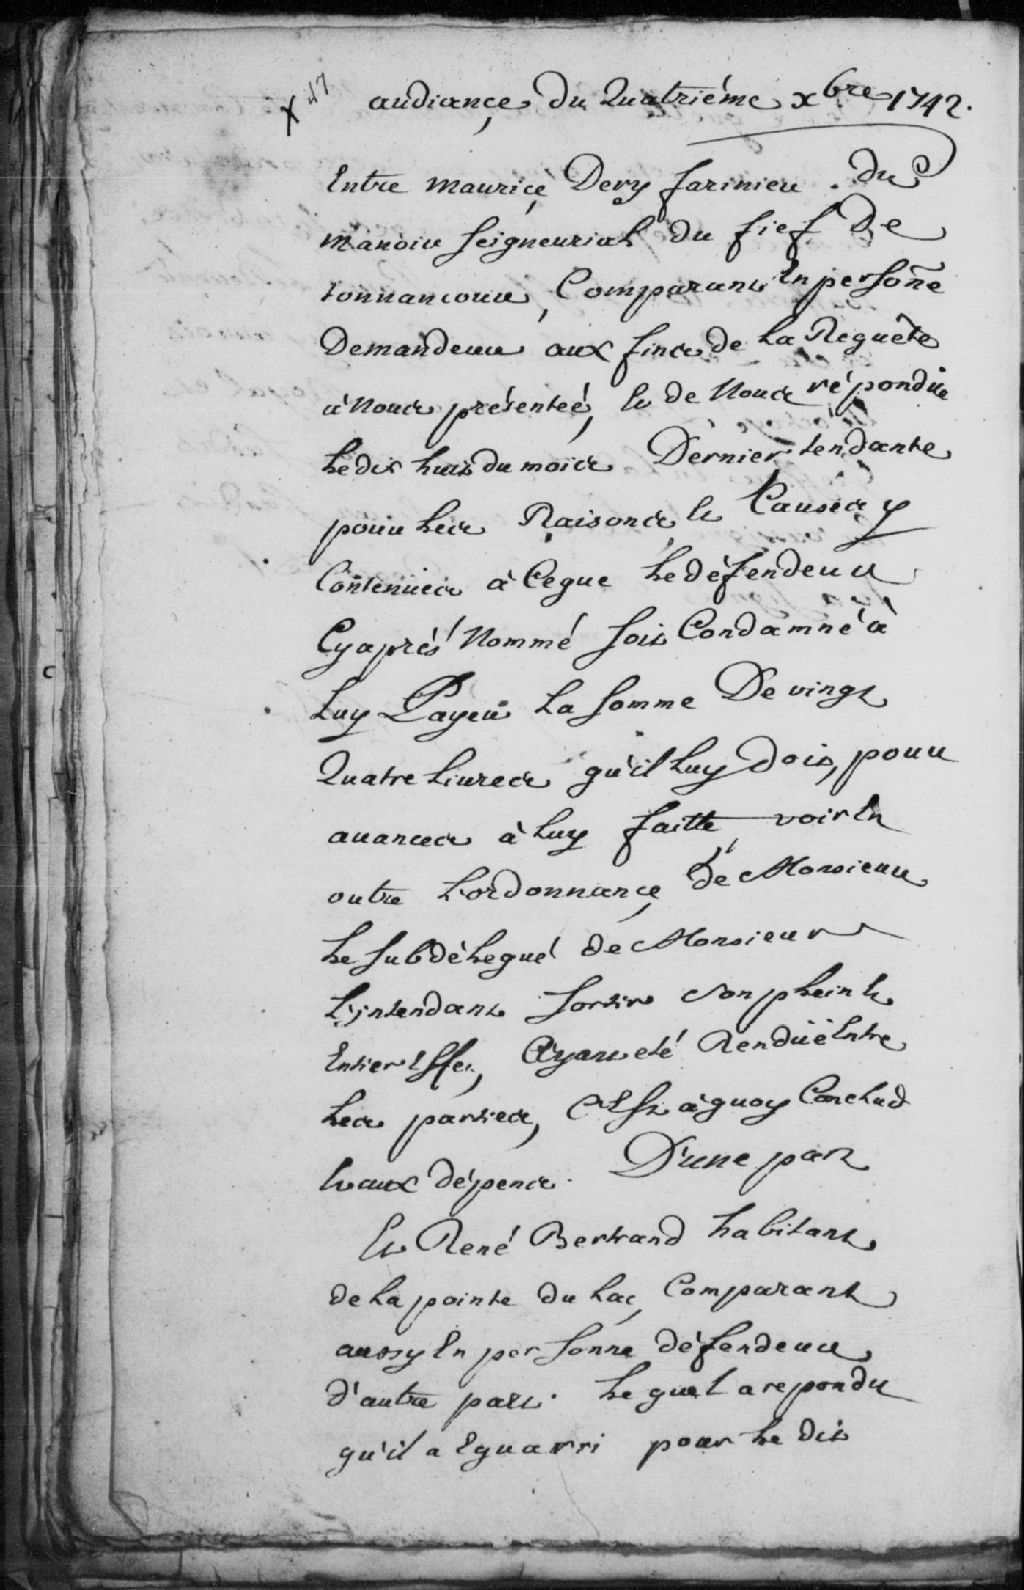 X 47
audiançe, du Quatriéme xbre 1742.
Entre mauriçe Dery farinier du
manoir seigneurial du fief De
tonnancour, Comparant En persoñe
Demandeur aux fins de La Requête
à Nous présenteé, Et de Nous répondüe
Le dix huit du mois Dernier tendante
pour Les Raisons et Causes y
Contenues à Ceque Le déffendeur
Cyaprés Nommé soit Condamné à
Luy Payer La somme De vingt
Quatre Livres qu'il Luy Doit, pour
avances à Luy faitte, voir En
outre L'ordonnançe, de Monsieur
Le subdélegué de Monsieur
L'jntendant sortir son plein Et
Entier Effet, Ayant eté Rendüe Entre
Les parties, Et à quoy Conclud
Et aux dépens. D'une part
Et René Bertrand habitant
de La pointe du Lac, Comparant
aussy En personne défendeur
d'autre part. Lequel a repondu
qu'il a Equarri pour Le dit